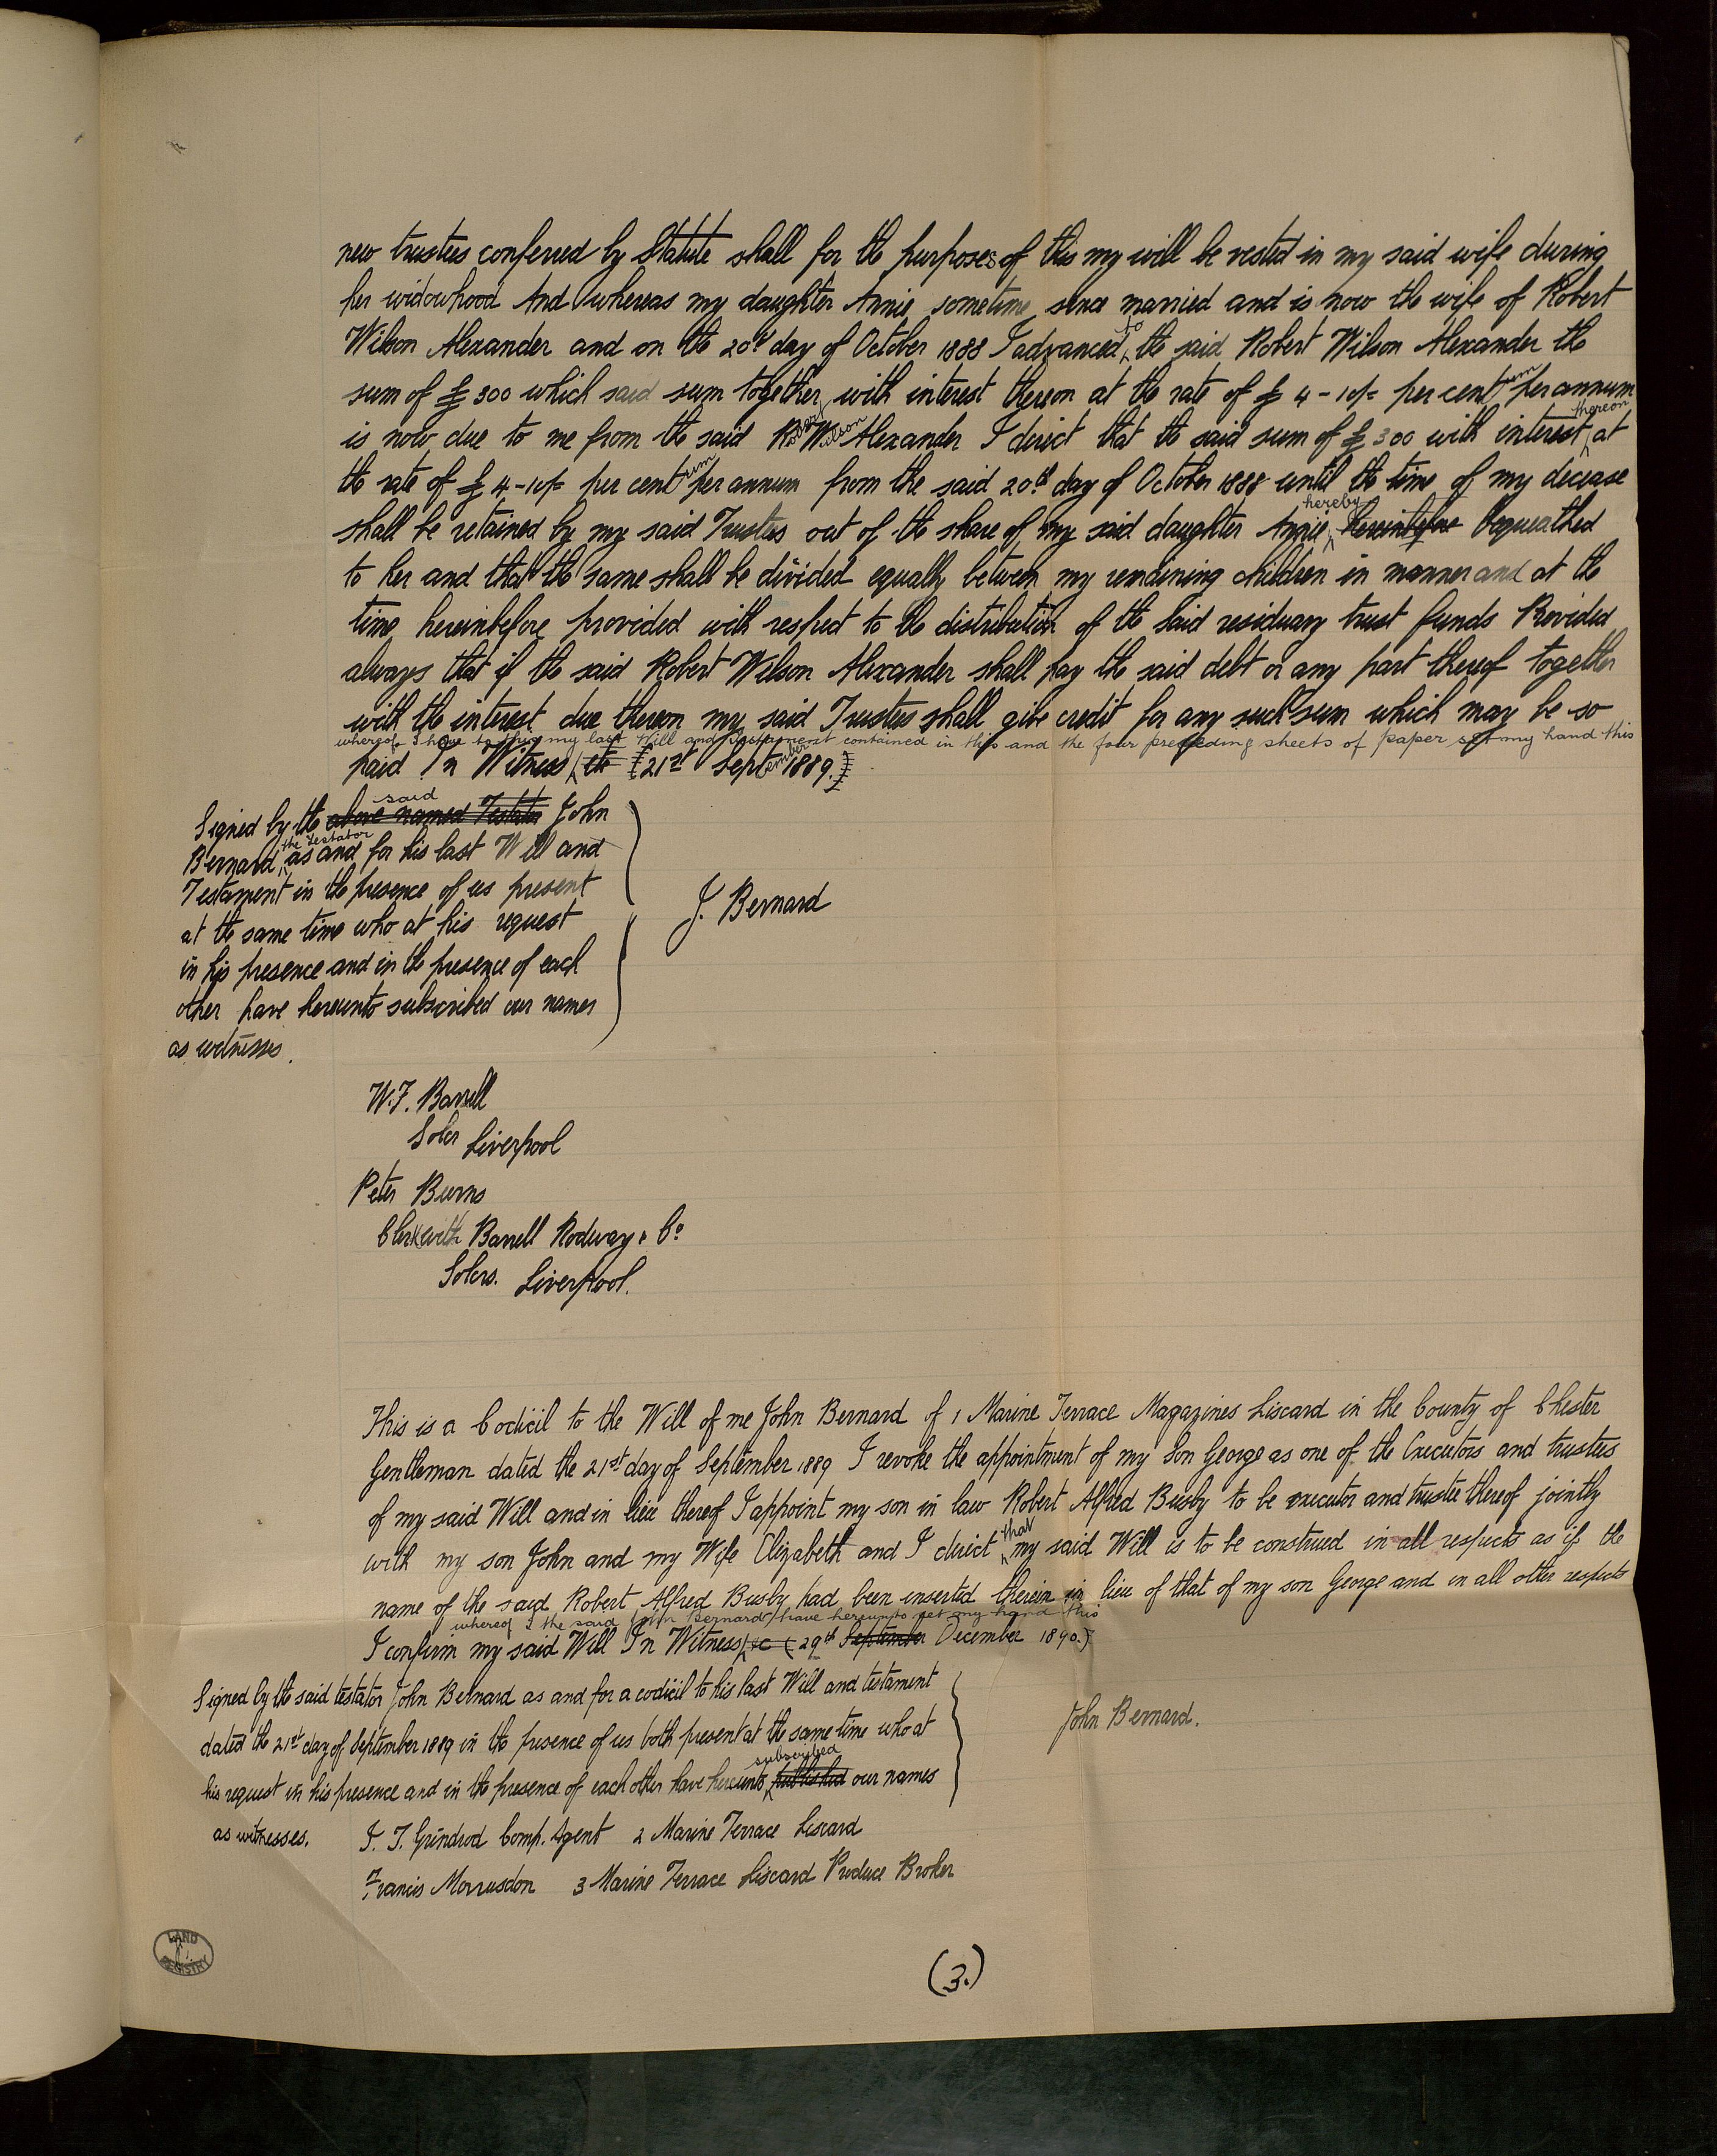 new trustees conferred by Statute shall for the purposes of this my will be vested in my said wife during
her widowhood And whereas my daughter Annie sometime since married and is now the wife of Robert
Wilson Alexander and on the 20th day of October 1888 I advanced to the said Robert Wilson Alexander the
sum of £300 which said sum together with interest thereon at the rate of £4-10/= per centum per annum
is now due to me from the said Robert Wilson Alexander I direct that the said sum of £300 with interest thereon at
the rate of £4-10/= per centum per annum from the said 20th day of October 1888 until the time of my decease
shall be retained by my said Trustees out of the share of my said daughter Annie hereby hereinbefore bequeathed
to her and that the same shall be divided equally between my remaining children in manner and at the
time hereinbefore provided with respect to the distribution of the said residuary trust funds Provided
always that if the said Robert Wilson Alexander shall pay the said debt or any part thereof together
with the interest due thereon my said Trustees shall give credit for any such sum which may be so
whereof I have to this my last Will and Testament contained in this and the four preceding sheets of paper set my hand this
paid In Witness etc (21st September 1889.)
Signed by the said above named Testator John
Bernard the testator as and for his last Will and
Testament in the presence of us present
at the same time who at his request
in his presence and in the presence of each
other have hereunto subscribed our names
as witnesses.
J. Bernard
W. F. Barrell
Solr Liverpool
Peter Burns
Clerk with Barrell Rodway & Co
Solrs. Liverpool.
This is a Codicil to the Will of me John Bernard of 1 Marine Terrace Magazines Liscard in the County of Chester
Gentleman dated the 21st day of September 1889 I revoke the appointment of my Son George as one of the Executors and trustees
of my said Will and in lieu thereof I appoint my son in law Robert Alfred Busby to be executor and trustee thereof jointly
with my son John and my Wife Elizabeth and I direct that my said Will is to be construed in all respects as if the
name of the said Robert Alfred Busby had been inserted therein in lieu of that of my son George and in all other respects
whereof I the said John Bernard have hereunto set my hand this
I confirm my said Will In Witness &c (29th September December 1890.)
Signed by the said testator John Bernard as and for a codicil to his last Will and testament
dated the 21st day of September 1889 in the presence of us both present at the same time who at
his request in his presence and in the presence of each other have hereunto subscribed published our names
as witnesses.
John Bernard.
Grindrod Comp. Agent 2 Marine Terrace Liscard
Francis 3 Marine Terrace Liscard Produce Broker
LAND REGISTRY
(3.)